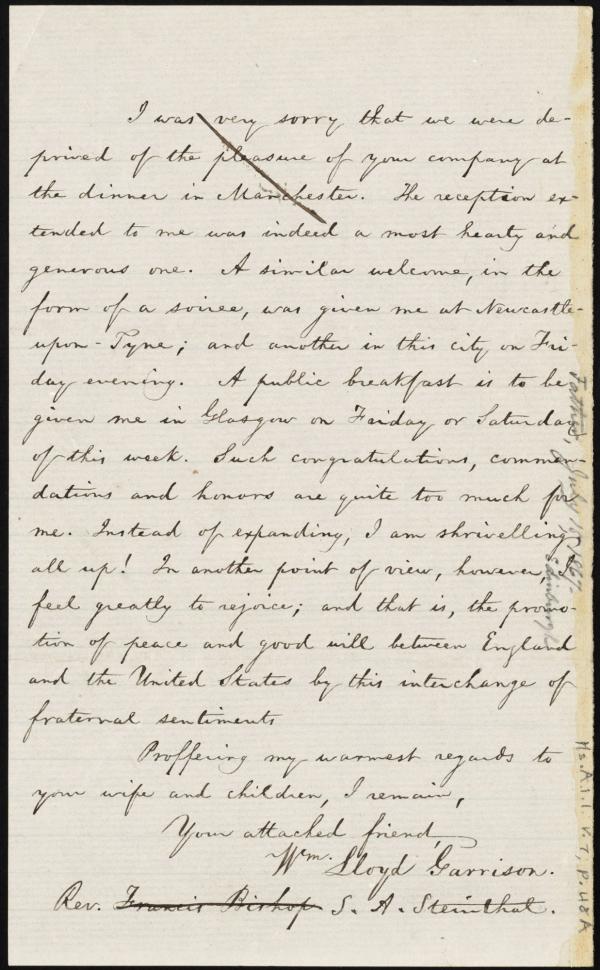 I was very sorry that we were de-
prived of the pleasure of your company at
the dinner in Manchester. The reception ex-
tended to me was indeed a most hearty and
generous one. A similar welcome, in the
form of a soiree, was given me at Newcastle-
upon-Tyne; and another in this city on Fri-
day evening. A public breakfast is to be
given me in Glasgow on Friday or Saturday
of this week. Such congratulations, commen-
dations and honors are quite too much for
me. Instead of expanding, I am shrivelling
all up! In another point of view, however, I
feel greatly to rejoice; and that is, the promo-
tion of peace and good will between England
and the United States by this interchange of
fraternal sentiments
Proffering my warmest regards to
your wife and children, I remain,
Your attached friend,
Wm. Lloyd Garrison.
Rev. Francis Bishop S. A. Steinthal.
July 1867.
Edinburgh
Ms.A.1.1. v.7, p.48A